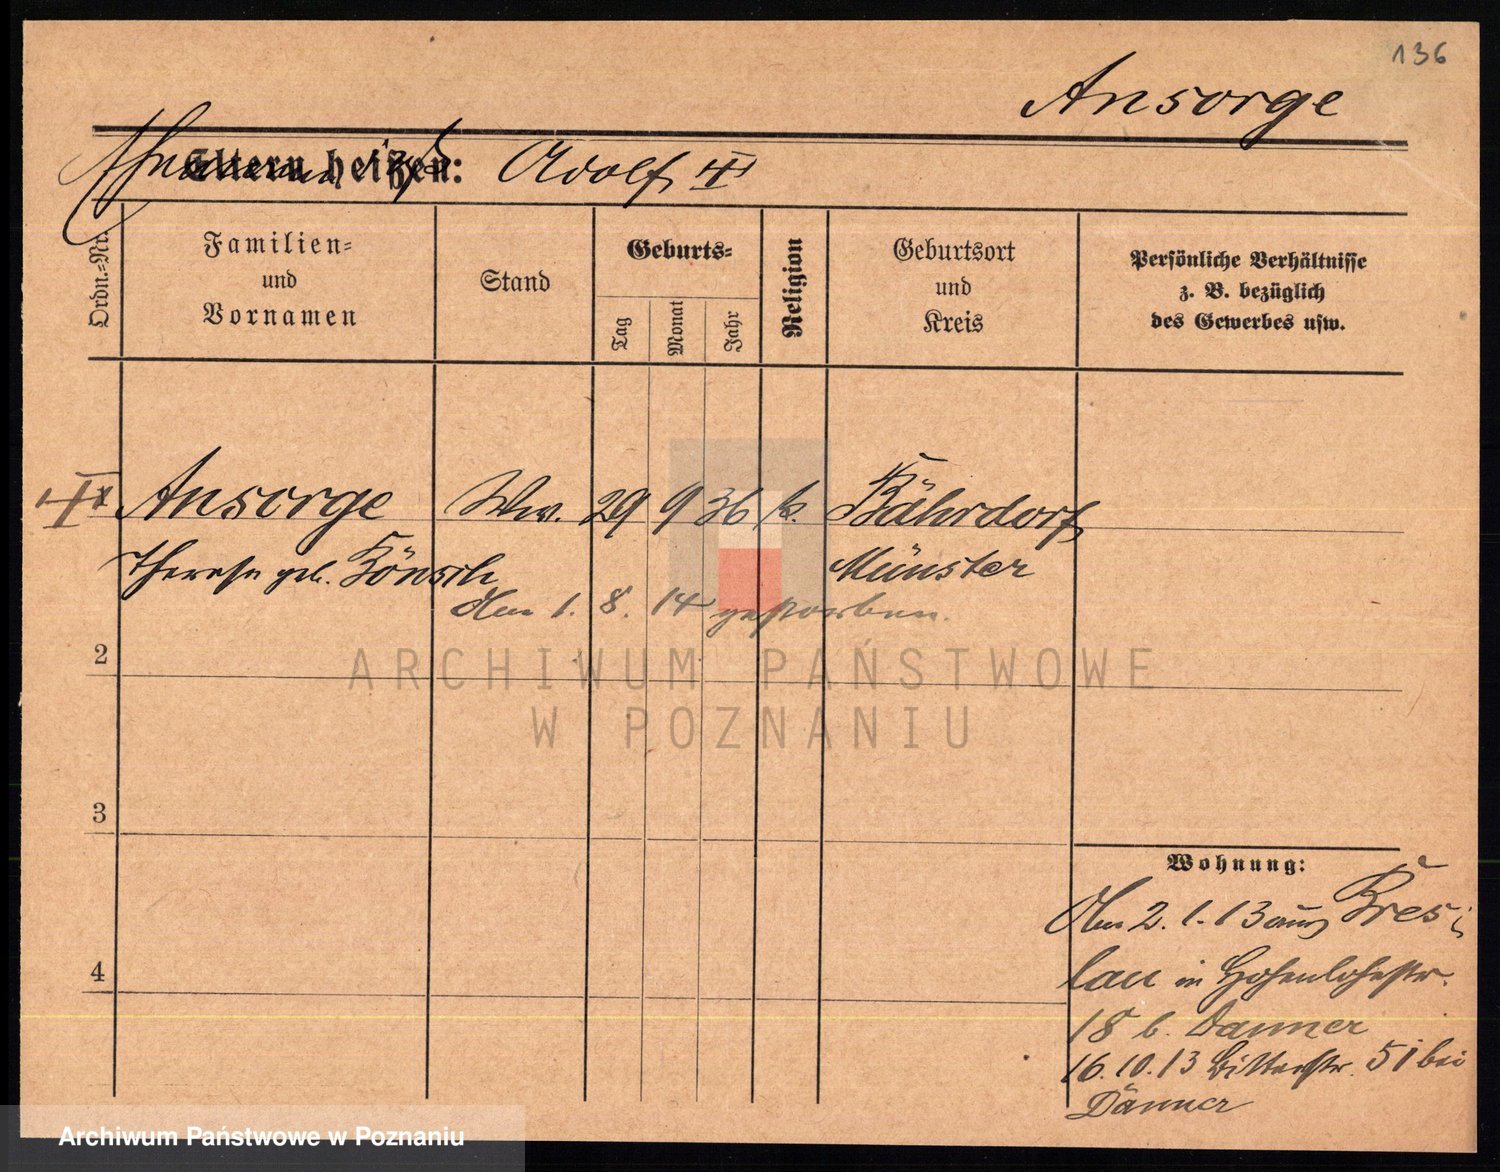 136
Ansorge
Eltern heißen: Adolf
Ordn.=Nr.
Familien=
und
Vornamen
Stand
Geburts=
Tag
Monat
Jahr
Religion
Geburtsort
und
Kreis
Persönliche Verhältnisse
z. B. bezüglich
des Gewerbes usw.
Ansorge Ww. 29 9 36 k. Bährdorf
Therese geb. Münster
Am 1. 8. 14 gestorben.
2
ARCHIWUM PAŃSTWOWE
W POZNANIU
3
Wohnung:
Am 2. 1. 13 aus Bres=
lau in Hohenlohestr.
4
18 b. Danner
16. 10. 13 Bitterstr. 51 bei
Dänner
Archiwum Państwowe w Poznaniu